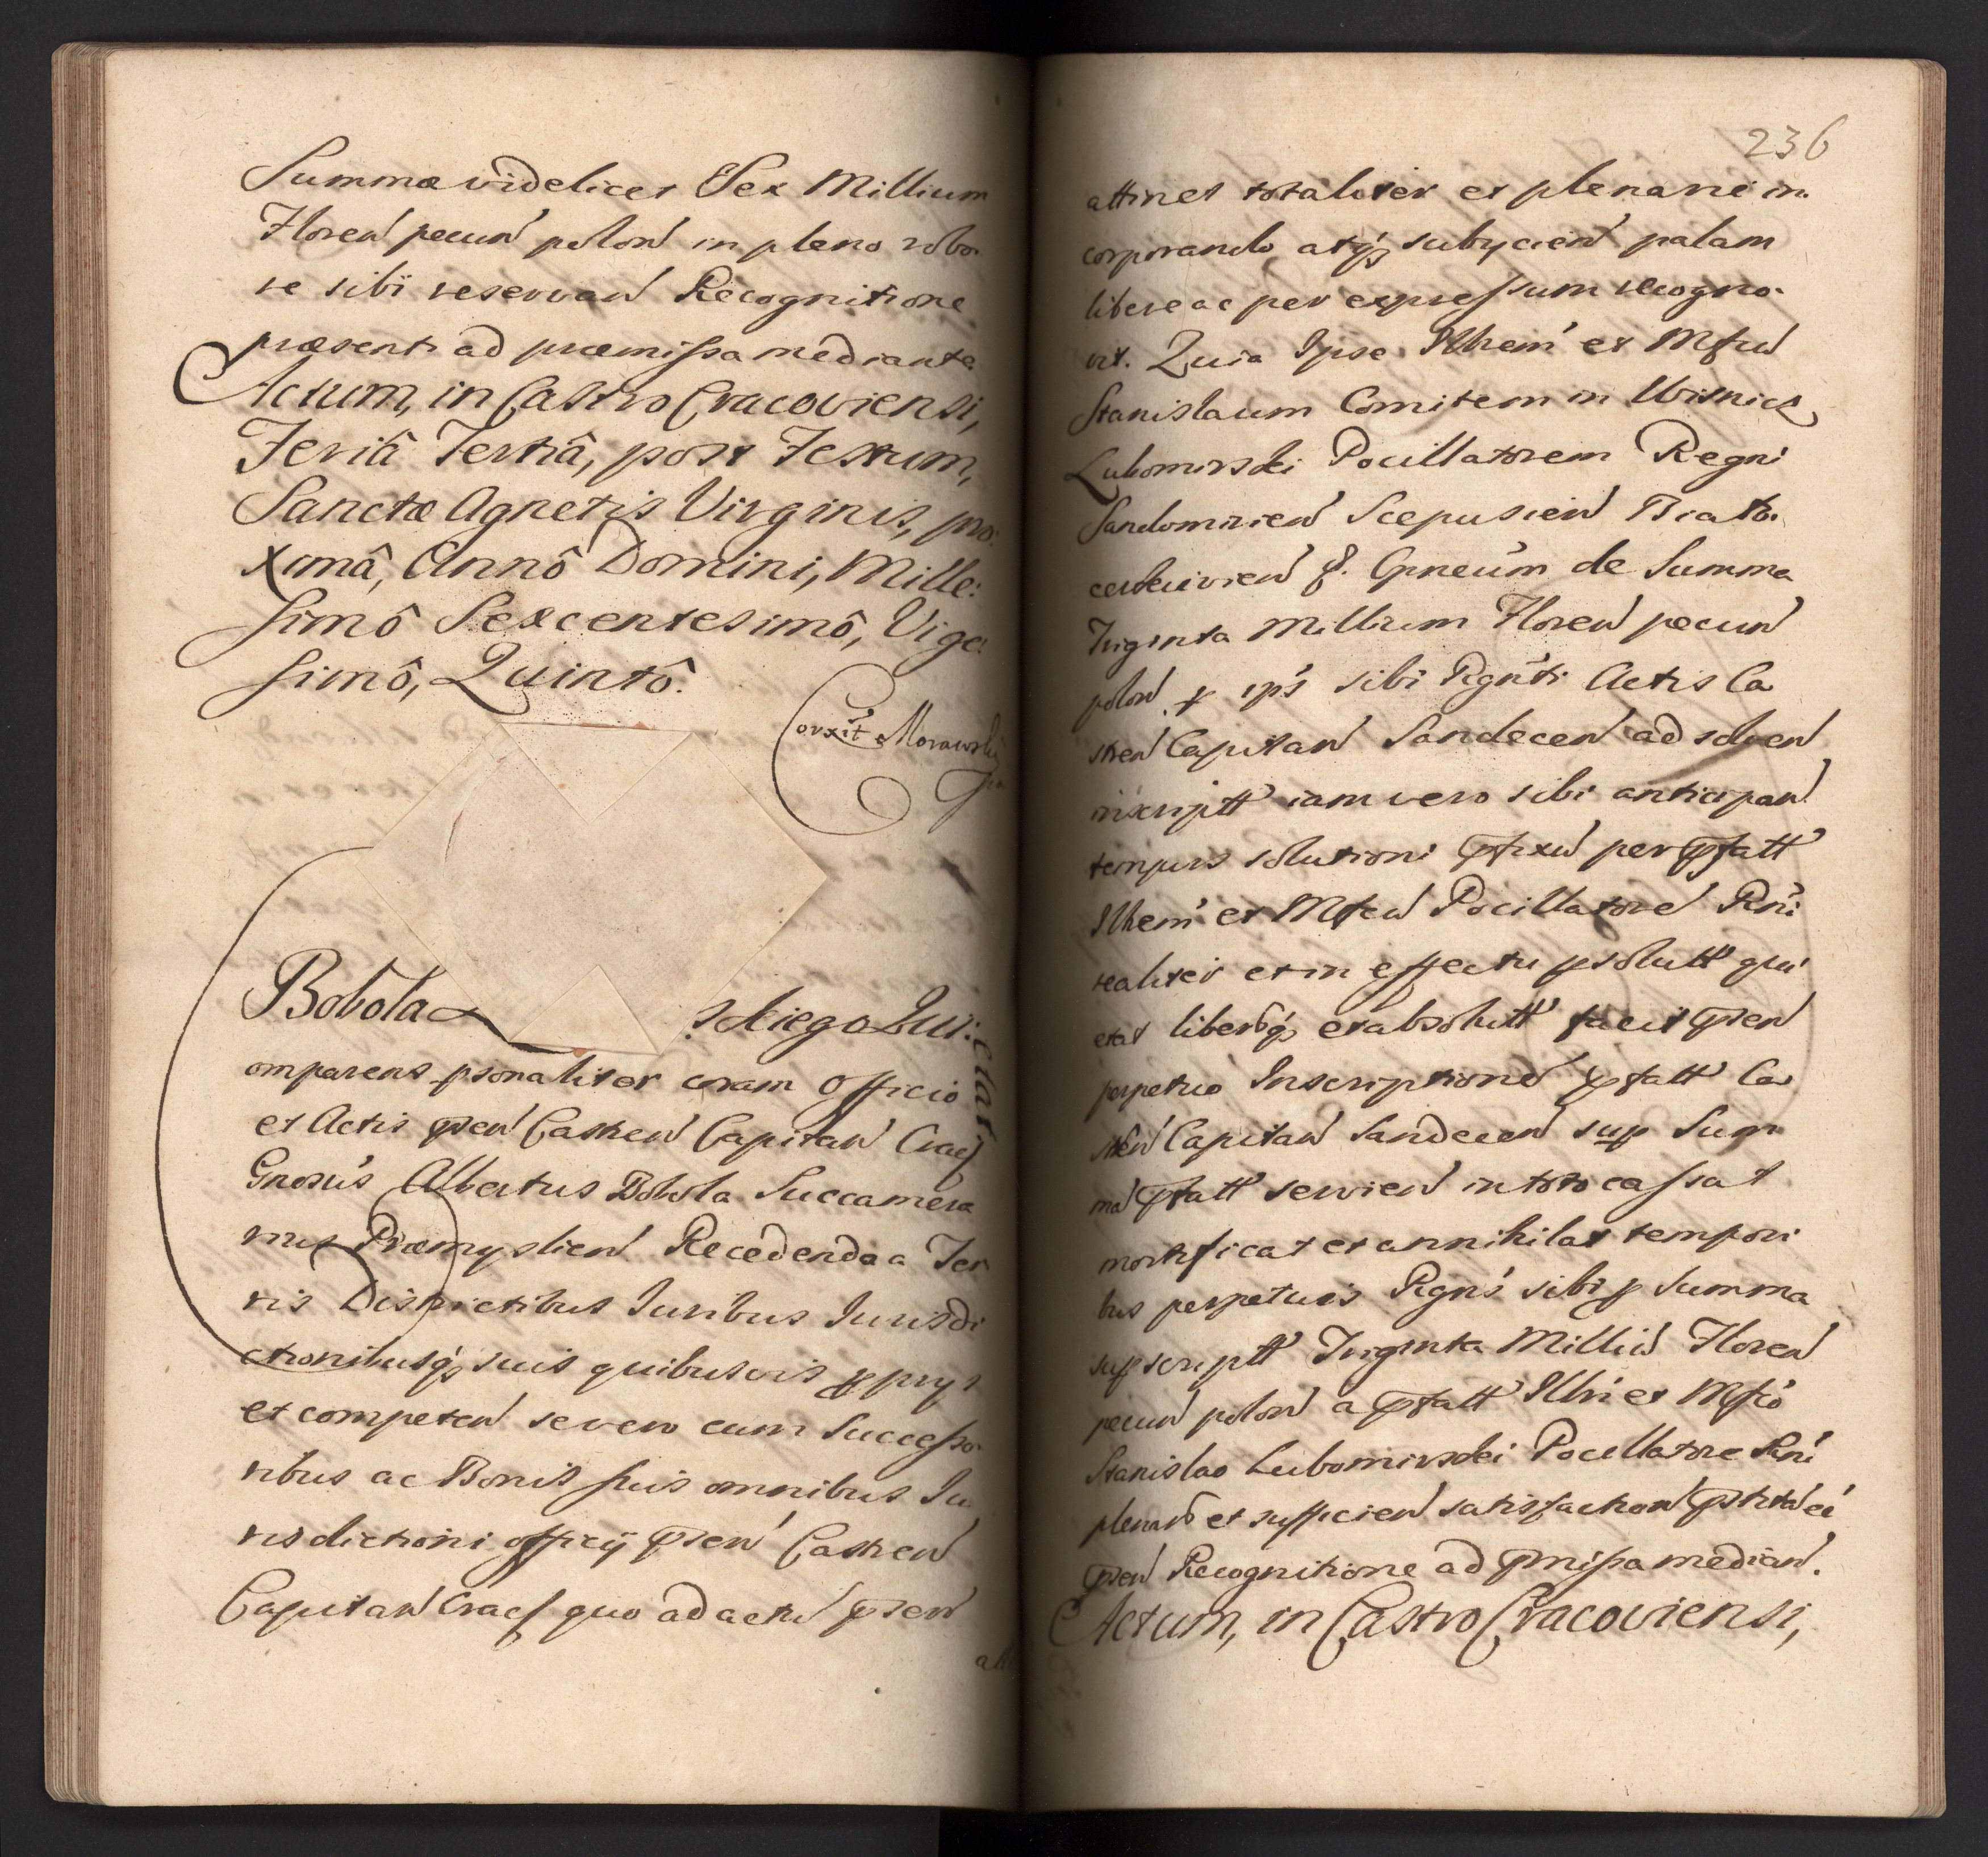 Summæ videlicet Sex Millium
Floren pecun polon in pleno robo
re sibi reservan Recognitione
præsenti ad præmissa mediante
Actum, in Castro Cracoviensi,
Feriâ Tertiâ, post Festum,
Sanctæ Agnetis Virginis, pro:
ximâ, Annô Domini, Mille:
simô Sexcentesimô, Vige:
simô, Quintô.
Corxit Morawski
Bobola
skiego Qui:
etat
omparens psonaliter coram Officio
et Actis pren Castren Capitan Crac
Gnosus Albertus Bobola Succamera
rius Præmyslien Recedendo a Ter
ris Districtibus Iuribus Iurisdi
ctionibusq suis quibusvis pprijs
et competen se vero cum Successo
ribus ac Bonis suis omnibus Iu
risdictioni officij pren Castren
Capitan Crac quo ad actu pren
att
236
attinet totaliter et plenarie in
corporando atq subijcien palam
libere ac per expressum recogno
vit. Quia Ipse Illhem et Mfcu
Stanislaum Comitem in Wisnicz
Lubomirski Pocillatorem Regni
Sandomirien Scepusien Biało
cerkievien &. Gnneum de Summa
Triginta Millium Floren pecun
polon p ips sibi Rgnti Actis Ca
stren Capitan Sandecen ad solven
inscriptt iam vero sibi anticipan
tempus solutioni pfixu per pfatt
Illhem et Mfcu Pocillatore Rni
realiter et in effectu psolutt qui
etat liberq et absolutt facit pren
perpetuo Inscriptione pfatt Ca
stren Capitan Sandecen sup Sum
ma pfatt servien in toto cassat
mortificat et annihilat tempori
bus perpetuis Rgns sibi p Summa
supscriptt Triginta Milliu Floren
pecun polon a pfatt Illri et Mfco
Stanislao Lubomirski Pocillatore Rni
plenar et sufficien satisfaction pstita ee
pren Recognitione ad pmissa median.
Actum, in Castro Cracoviensi,